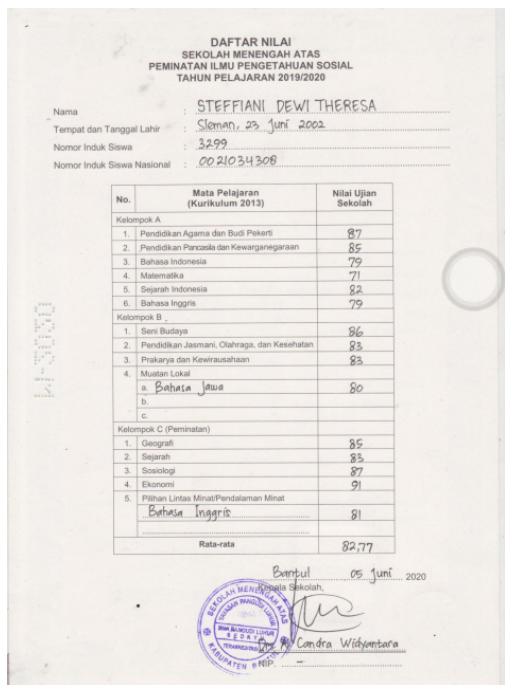 DAFTAR NILAI
SEKOLAH MENENGAH ATAS
PEMINATAN ILMU PENGETAHUAN SOSIAL
TAHUN PELAJARAN 2019/2020
Nama : STEFFIANI DEWI THERESA
Tempat dan Tanggal Lahir : Sleman, 23 Juni 2002
Nomor Induk Siswa : 3299
Nomor Induk Siswa Nasional : 0021034308
No. Mata Pelajaran (Kurikulum 2013) Nilai Ujian Sekolah
Kelompok A
1. Pendidikan Agama dan Budi Pekerti 87
2. Pendidikan Pancasila dan Kewarganegaraan 85
3. Bahasa Indonesia 79
4. Matematika 71
5. Sejarah Indonesia 82
6. Bahasa Inggris 79
Kelompok B
1. Seni Budaya 86
2. Pendidikan Jasmani, Olahraga, dan Kesehatan 83
3. Prakarya dan Kewirausahaan 83
4. Muatan Lokal
a. Bahasa Jawa 80
b.
c.
Kelompok C (Peminatan)
1. Geografi 85
2. Sejarah 83
3. Sosiologi 87
4. Ekonomi 91
5. Pilihan Lintas Minat/Pendalaman Minat
Bahasa Inggris 81
Rata-rata 82,77
Bantul 05 Juni 2020
Kepala Sekolah,
SEKOLAH MENENGAH ATAS
YAYASAN PANGUDI LUHUR
SEDAYU
KABUPATEN BANTUL
Candra Widyantara
NIP. -